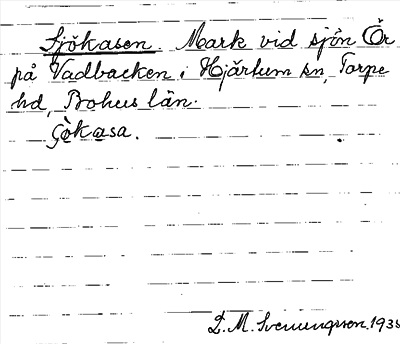 Sjökasen. Mark vid sjön Ör
på Vadbacken i Hjärtum sn, Torpe
hd, Bohus län.
Gökasa.
D. M. Svenungsson. 1935